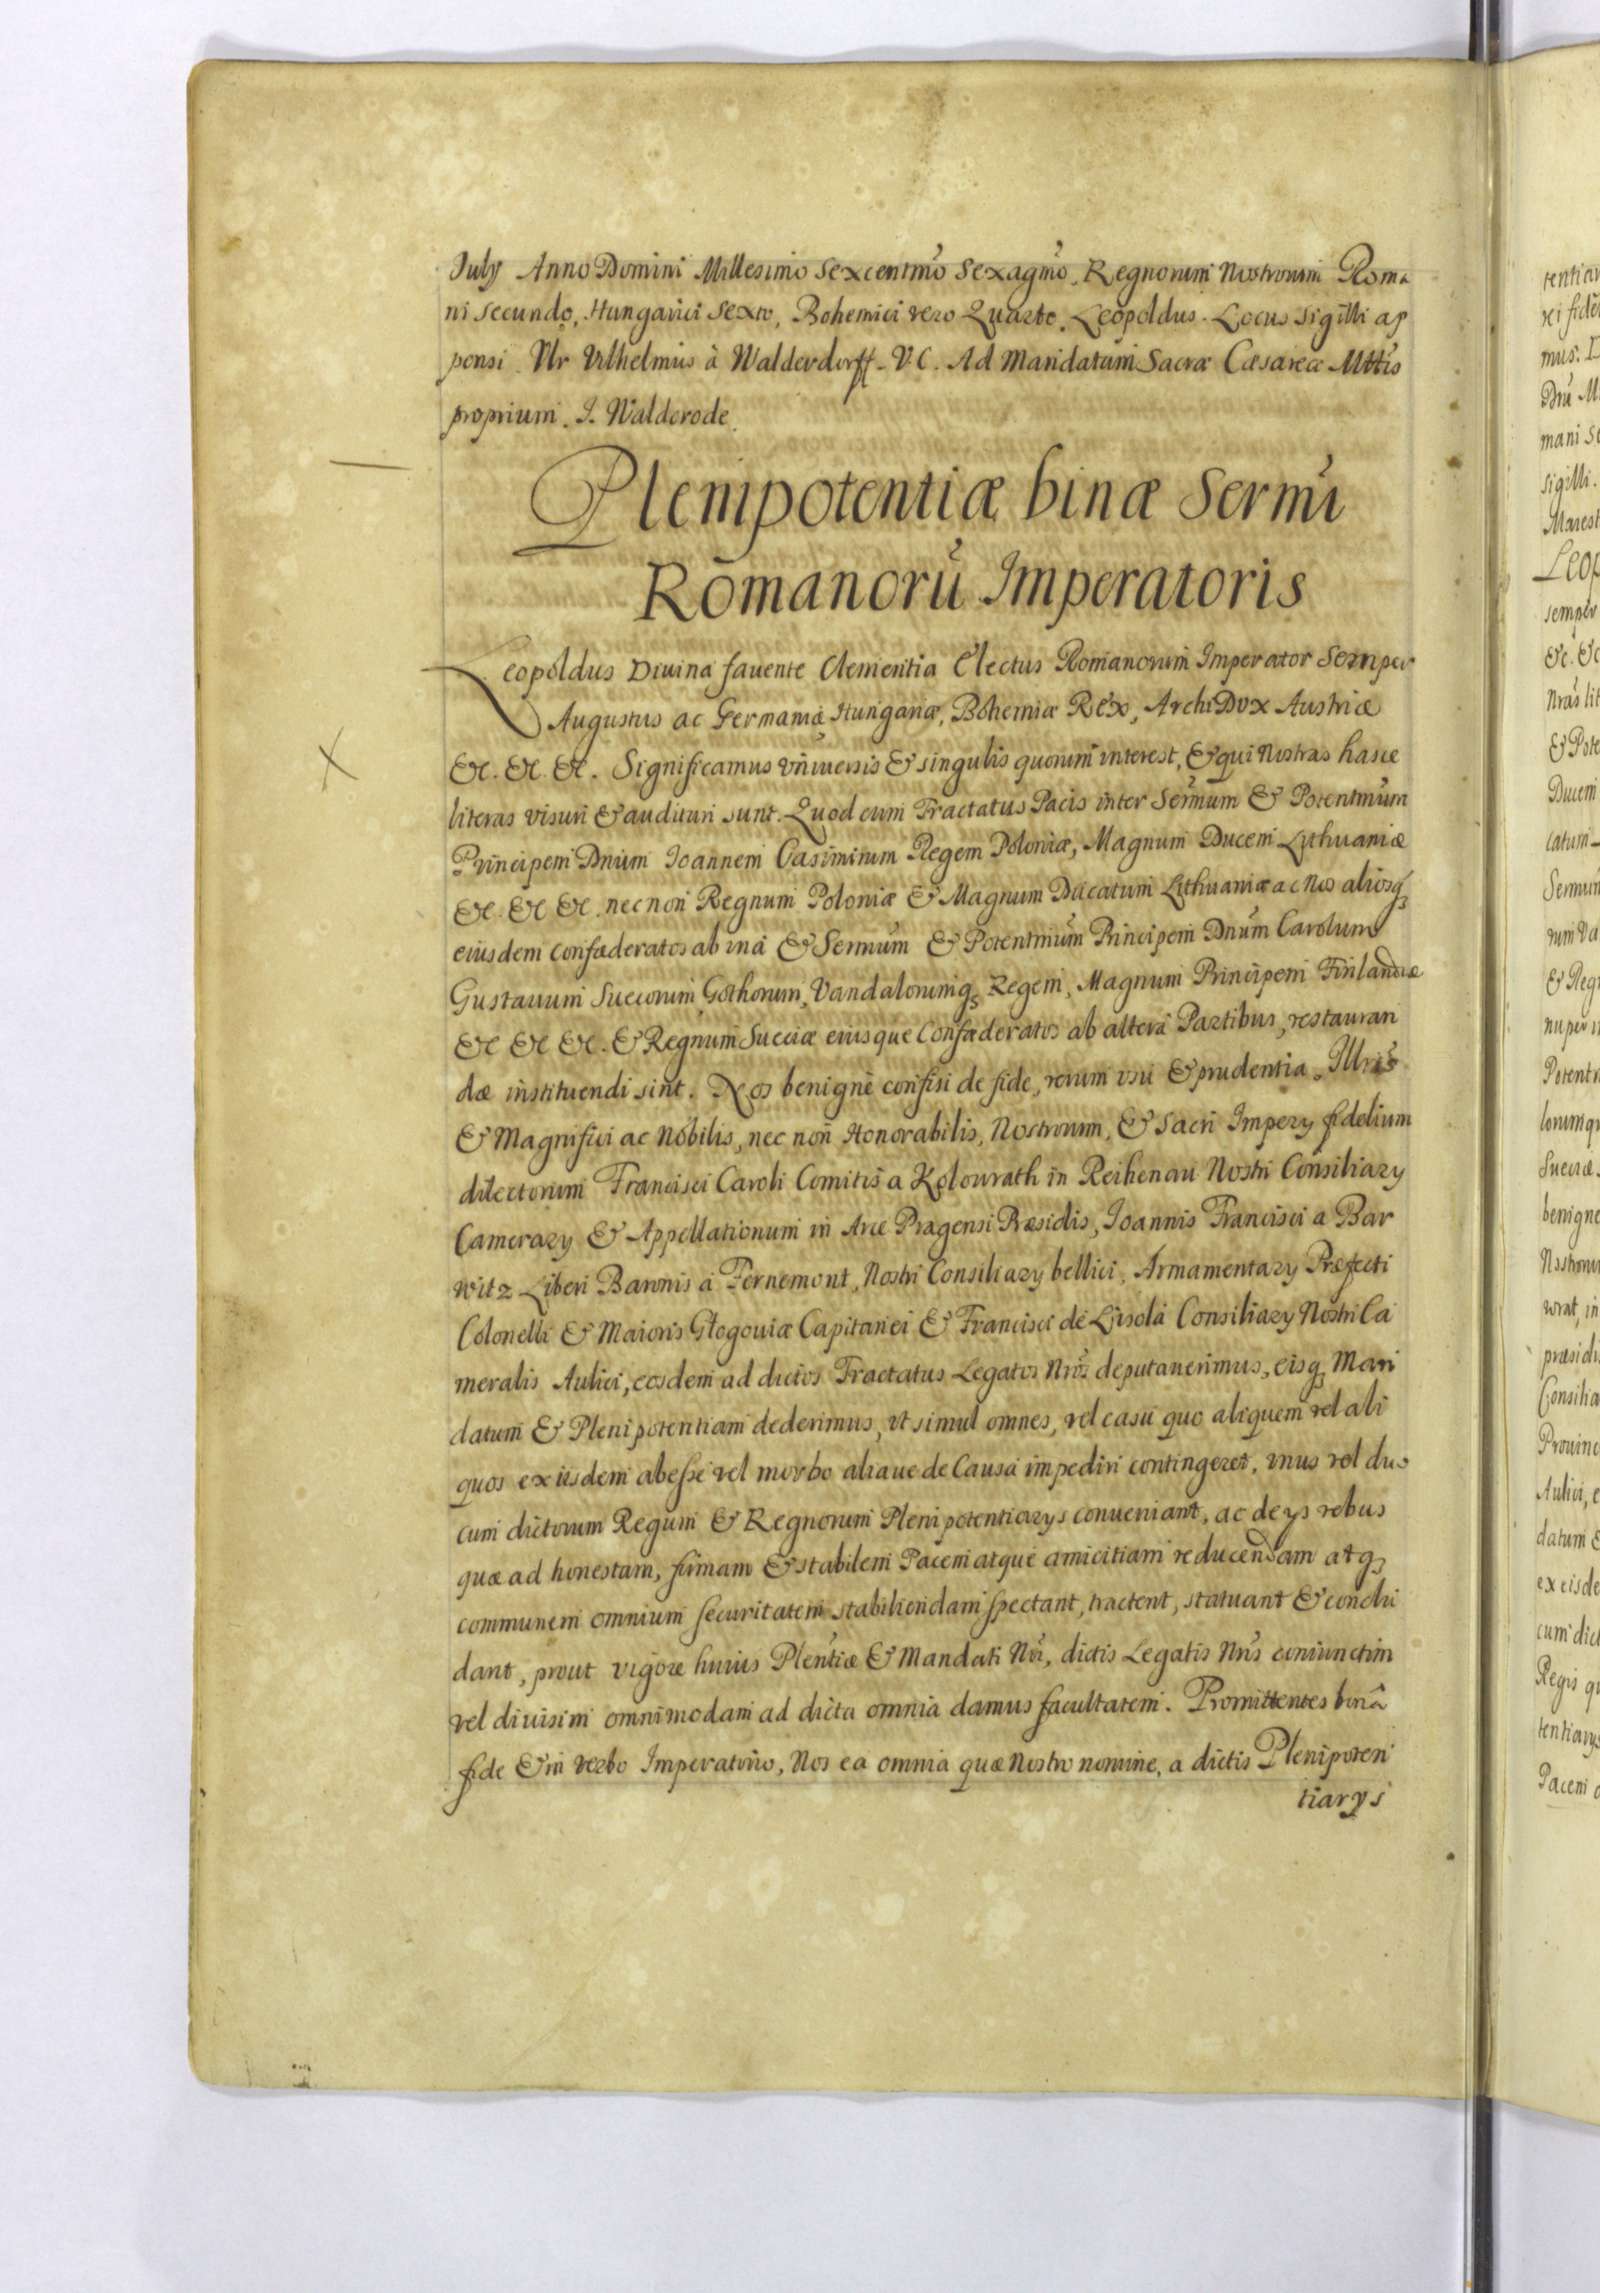 July Anno Domini Millesimo Sexcentmõ Sexagmõ. Regnorum Nostrorum Roma
ni secundo, Hungarici Sexto, Bohemici vero Quarto. Leopoldus. Locus sigilli ap
pensi. Vlr Vilhelmus à Walderdorff. V.C. Ad Mandatum Sacræ Cæsareæ Mttis
proprium. I. Walderode.
Plenipotentiæ binæ Sermi
Romanorũ Imperatoris
Leopoldus Diuina fauente Clementia Electus Romanorum Imperator Semper
Augustus ac Germaniæ, Hungariæ, Bohemiæ Rex, ArchiDux Austriæ
&c. &c. &c. Significamus vniuersis & singulis quorum interest, & qui Nostras hasce
literas visuri & audituri sunt. Quod cum Tractatus Pacis inter Sermum & Potentmum
Principem Dnum Ioannem Casimirum Regem Poloniæ, Magnum Ducem Lithuaniæ
&c. &c &c. nec non Regnum Poloniæ & Magnum Ducatum Lithuaniæ ac Nos aliosq3
eiusdem confæderatos ab vna & Sermum & Potentmum Principem Dnum Carolum
Gustauum Suecorum Gothorum, Vandalorumq3 Regem, Magnum Principem Finlandiæ
&c &c &c. & Regnum Sueciæ eiusque Confæderatos ab altera Partibus, restauran
dæ instituendi sint. Nos benignè confisi de fide, rerum vsu & prudentia. Illris
& Magnifici ac Nobilis, nec non Honorabilis, Nostrorum, & Sacri Impery fidelium
dilectorum Francisci Caroli Comitis a Kolowrath in Reihenau Nostri Consiliary
Camerary & Appellationum in Arce Pragensi Præsidis, Ioannis Francisci a Bar
witz Liberi Baronis a Fernemont, Nostri Consiliary bellici, Armamentary Præfecti
Colonelli & Maioris Glogouiæ Capitanei & Francisci de Lisola Consiliary Nostri Ca
meralis Aulici, eosdem ad dictos Tractatus Legatos Nros deputauerimus, eisq3 Man
datum & Plenipotentiam dederimus, vt simul omnes, vel casu quo aliquem vel ali
quos ex iisdem abesse vel morbo aliaue de Causa impediri contingeret, vnus vel duo
cum dictorum Regum & Regnorum Plenipotentiarys conueniant, ac de ys rebus
quæ ad honestam, firmam & stabilem Pacem atque amicitiam reducendam atq3
communem omnium securitatem stabiliendam spectant, tractent, statuant & conclu
dant, prout vigore huius Plentiæ & Mandati Nri, dictis Legatis Nris coniunctim
vel diuisim omnimodam ad dicta omnia damus facultatem. Promittentes bonâ
fide & in verbo Imperatorio, Nos ea omnia quæ Nostro nomine, a dictis Plenipoten
tiarys